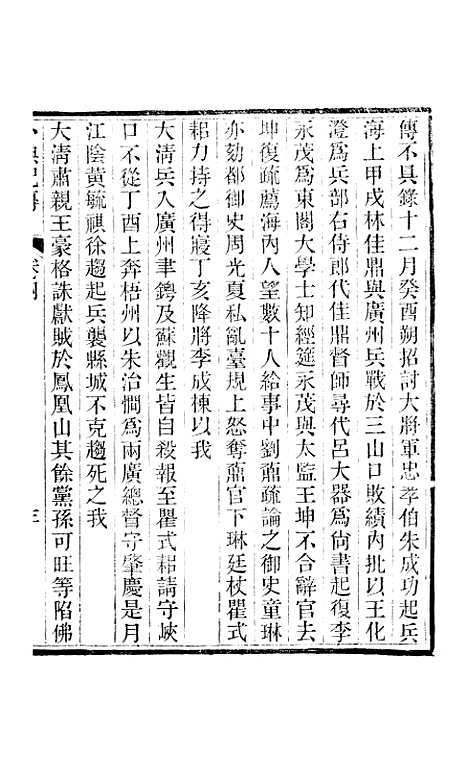 傳不具錄十二月癸酉朔招討大將軍忠孝伯朱成功起兵
海上甲戌林佳鼎與廣州兵戰於三山口敗績內批以王化
澄爲兵部右侍郎代佳鼎督師尋代呂大器爲尚書起復李
永茂爲東閣大學士知經筵永茂與太監王坤不合辭官去
坤復疏薦海內人望數十人給事中劉鼒疏論之御史童琳
亦劾都御史周光夏私亂臺規上怒奪鼒官下琳廷杖瞿式
耜力持之得寢丁亥降將李成棟以我
大清兵入廣州聿鐭及蘇觀生皆自殺報至瞿式耜請守峽
口不從丁酉上奔梧州以朱治憪爲兩廣總督守肇慶是月
江陰黃毓祺徐趨起兵襲縣城不克趨死之我
大清肅親王豪格誅獻賊於鳳凰山其餘黨孫可旺等陷佛
小腆紀傳 卷四 三